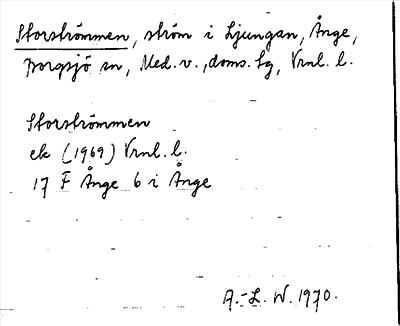 Storströmmen, ström i Ljungan, Ånge,
Borgsjö sn, Med. v., doms. lg, Vrnl. l.
Storströmmen
ek (1969) Vrnl. l.
17 F Ånge 6 i Ånge
A.-L. W. 1970.